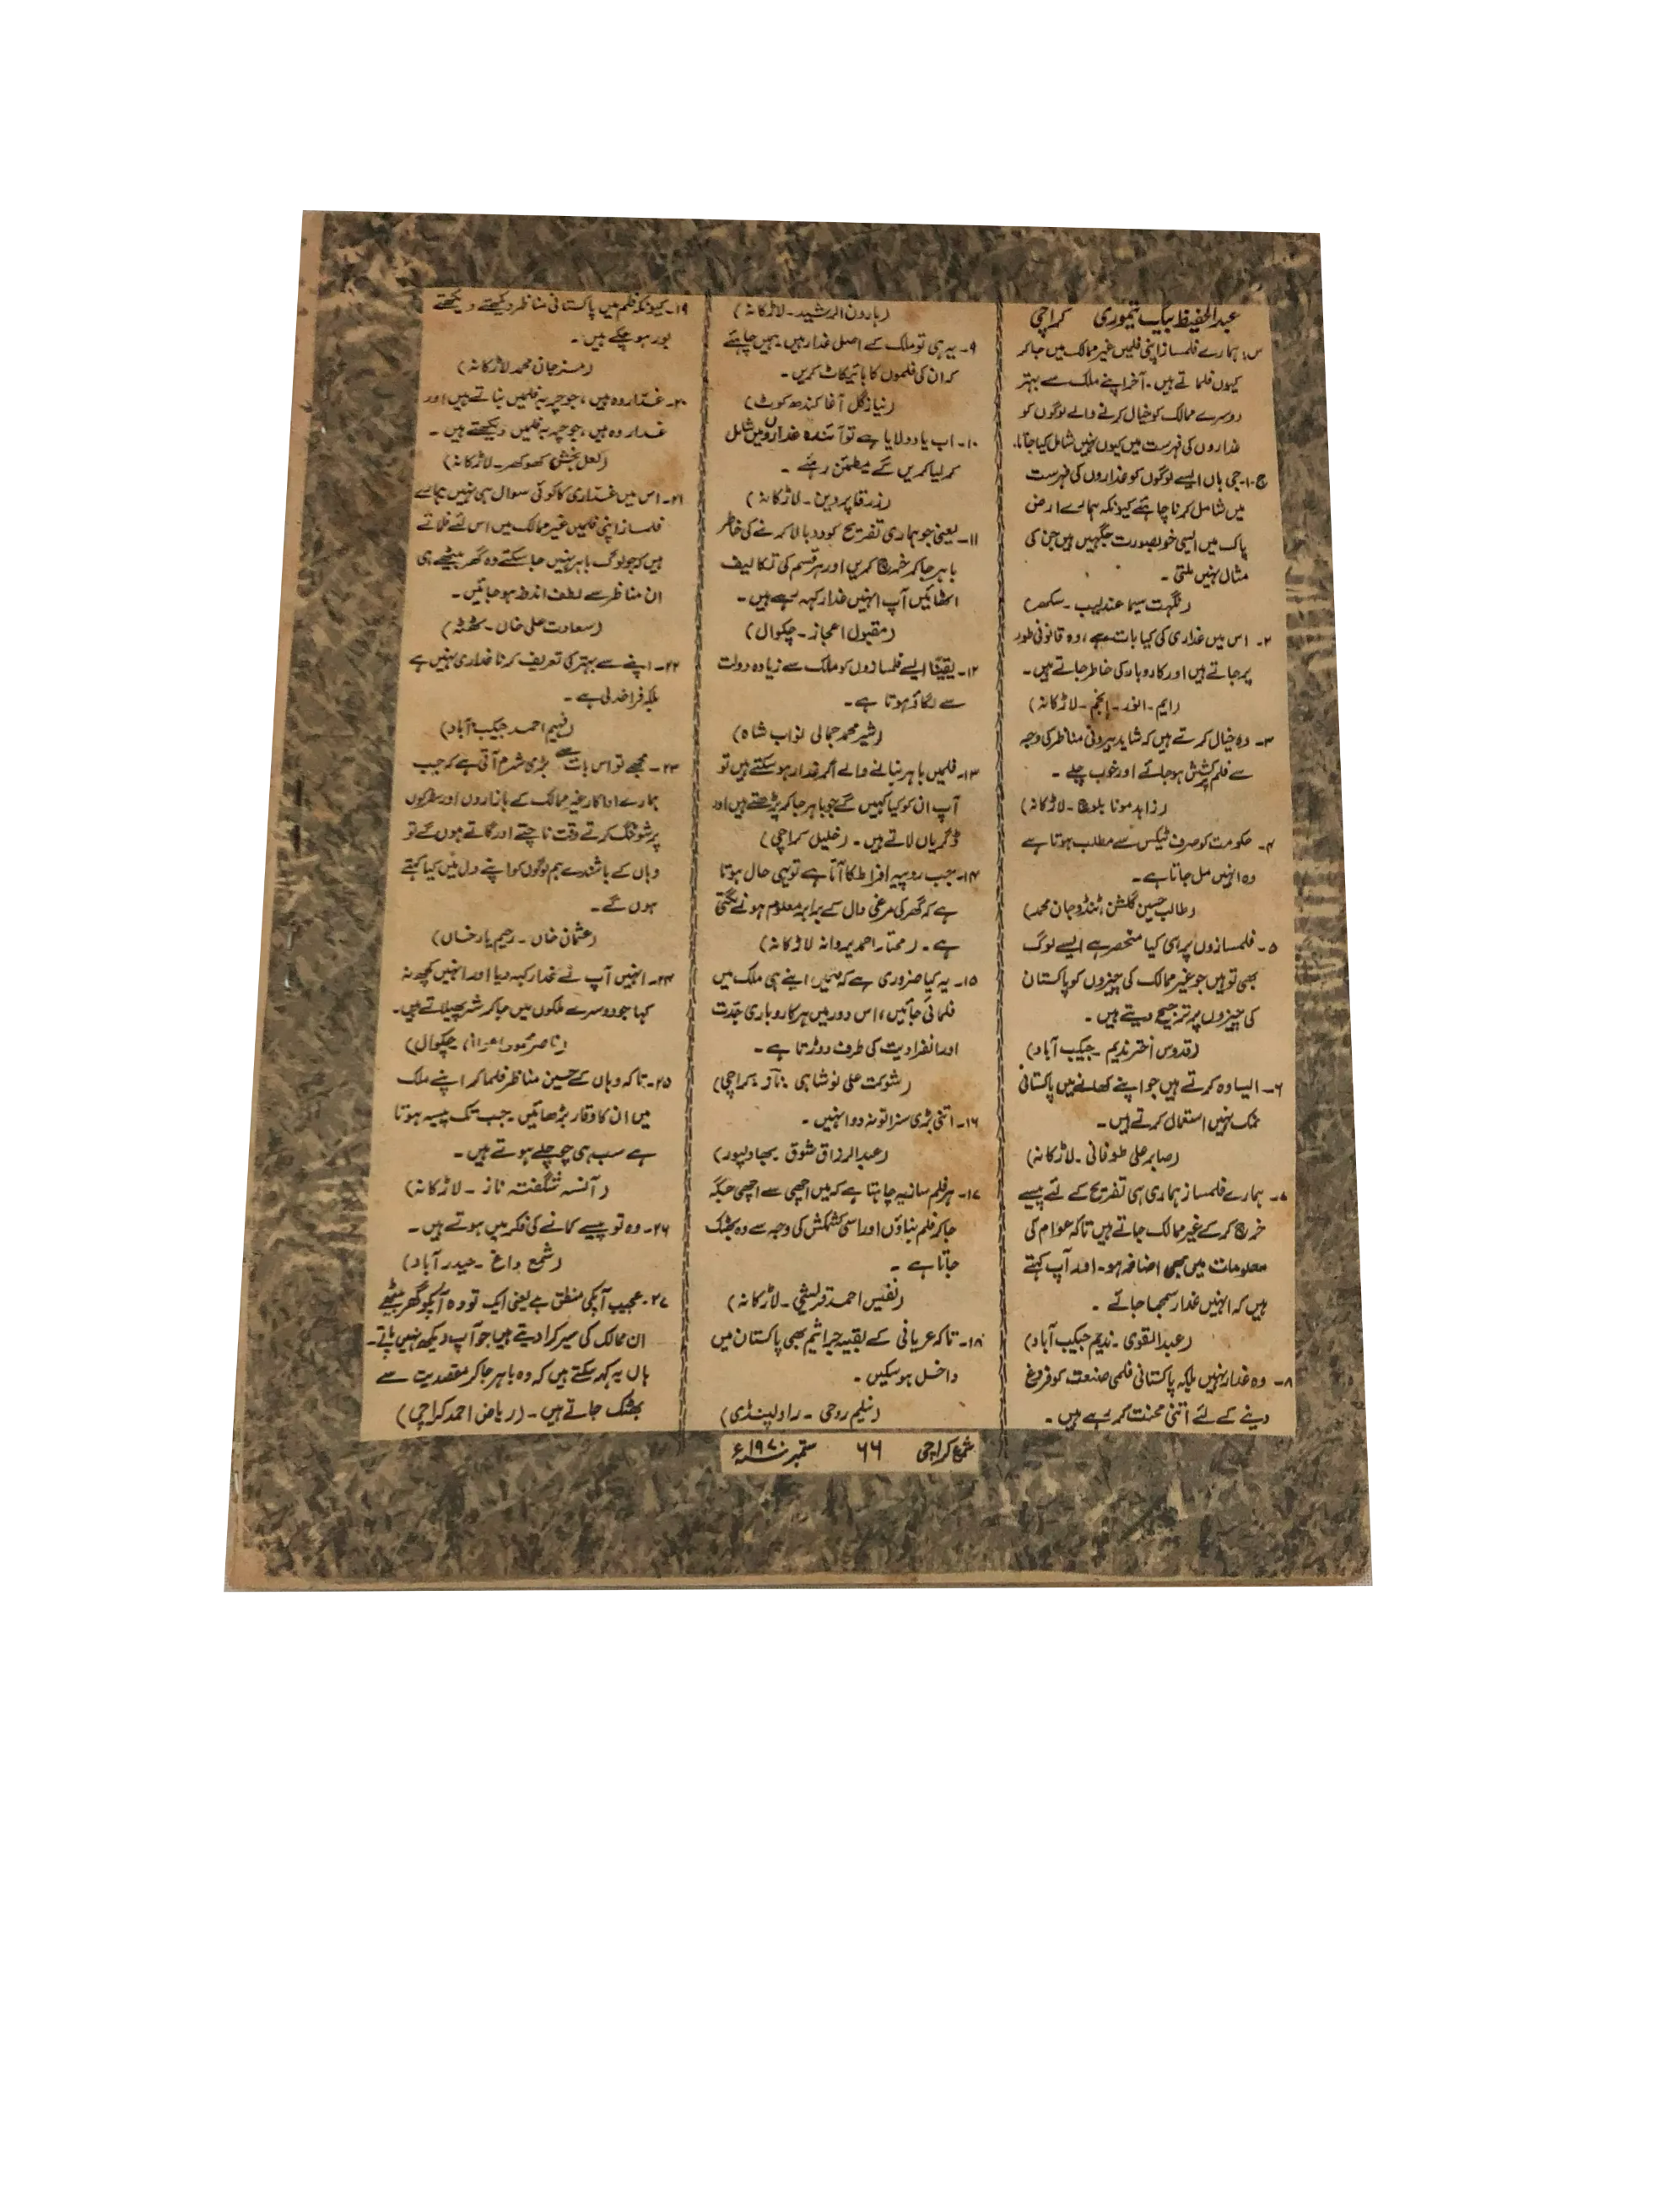 عبدالحفیظ بیگ تیموری کراچی
س: ہمارے فلمساز اپنی فلمیں غیر ممالک میں جاکر
کیوں فلماتے ہیں۔ آخر اپنے ملک سے بہتر
دوسرے ممالک کو خیال کرنے والے لوگوں کو
غداروں کی فہرست میں کیوں نہیں شامل کیا جاتا۔
ج۔۱۔ جی ہاں ایسے لوگوں کو غداروں کی فہرست
میں شامل کرنا چاہئے کیونکہ ہمارے ارض
پاک میں ایسی خوبصورت جگہیں ہیں جن کی
مثال نہیں ملتی۔
(نگہت سیما عندلیب۔ سکھر)
۲۔ اس میں غداری کی کیا بات ہے، وہ قانونی طور
پر جاتے ہیں اور کاروبار کی خاطر جاتے ہیں۔
(ایم۔ انور۔ انجم۔ لاڑکانہ)
۳۔ وہ خیال کرتے ہیں کہ شاید بیرونی مناظر کی وجہ
سے فلم پرکشش ہوجائے اور خوب چلے۔
(زاہد مونا بلوچ۔ لاڑکانہ)
۴۔ حکومت کو صرف ٹیکس سے مطلب ہوتا ہے
وہ انہیں مل جاتا ہے۔
(طالب حسین گلشن، ٹنڈو جان محمد)
۵۔ فلمسازوں پر ہی کیا منحصر ہے ایسے لوگ
بھی تو ہیں جو غیر ممالک کی چیزوں کو پاکستان
کی چیزوں پر ترجیح دیتے ہیں۔
(قدوس اختر ندیم۔ جیکب آباد)
۶۔ ایسا وہ کرتے ہیں جو اپنے کھانے میں پاکستانی
نمک نہیں استعمال کرتے ہیں۔
(صابر علی طوفانی۔ لاڑکانہ)
۷۔ ہمارے فلمساز ہماری ہی تفریح کے لئے پیسے
خرچ کرکے غیر ممالک جاتے ہیں تاکہ عوام کی
معلومات میں بھی اضافہ ہو۔ اور آپ کہتے
ہیں کہ انہیں غدار سمجھا جائے۔
(عبدالقوی۔ ندیم جیکب آباد)
۸۔ وہ غدار نہیں بلکہ پاکستانی فلمی صنعت کو فروغ
دینے کے لئے اتنی محنت کررہے ہیں۔
(ہارون الرشید۔ لاڑکانہ)
۹۔ یہ ہی تو ملک کے اصل غدار ہیں۔ ہمیں چاہئے
کہ ان کی فلموں کا بائیکاٹ کریں۔
(نیاز گل آغا کندھ کوٹ)
۱۰۔ اب یاد دلایا ہے تو آئندہ غداروں میں شامل
کرلیا کریں گے مطمئن رہئے۔
(زرقا پروین۔ لاڑکانہ)
۱۱۔ یعنی جو ہماری تفریح کو دوبالا کرنے کی خاطر
باہر جاکر خرچ کریں اور ہر قسم کی تکالیف
اٹھائیں آپ انہیں غدار کہہ رہے ہیں۔
(مقبول اعجاز۔ چکوال)
۱۲۔ یقیناً ایسے فلمسازوں کو ملک سے زیادہ دولت
سے لگاؤ ہوتا ہے۔
(شیر محمد جمالی نواب شاہ)
۱۳۔ فلمیں باہر بنانے والے اگر غدار ہوسکتے ہیں تو
آپ ان کو کیا کہیں گے جو باہر جاکر پڑھتے ہیں اور
ڈگریاں لاتے ہیں۔ (خلیل کراچی)
۱۴۔ جب روپیہ افراط کا آتا ہے تو یہی حال ہوتا
ہے کہ گھر کی مرغی دال کے برابر معلوم ہونے لگتی
ہے۔ (مختار احمد پروانہ لاڑکانہ)
۱۵۔ یہ کیا ضروری ہے کہ فلمیں اپنے ہی ملک میں
فلمائی جائیں، اس دور میں ہر کاروباری جدّت
اور انفرادیت کی طرف دوڑتا ہے۔
(شوکت علی نوشاہی ناز، کراچی)
۱۶۔ اتنی بڑی سزا تو نہ دو انہیں۔
(عبدالرزاق شوق بہاولپور)
۱۷۔ ہر فلمساز یہ چاہتا ہے کہ میں اچھی سے اچھی جگہ
جاکر فلم بناؤں اور اسی کشمکش کی وجہ سے وہ بھٹک
جاتا ہے۔
(نفیس احمد قریشی۔ لاڑکانہ)
۱۸۔ تاکہ عریانی کے بقیہ جراثیم بھی پاکستان میں
داخل ہوسکیں۔
(نیلم روحی۔ راولپنڈی)
۱۹۔ کیونکہ فلم میں پاکستانی مناظر دیکھتے دیکھتے
بور ہوچکے ہیں۔
(مسز جان محمد لاڑکانہ)
۲۰۔ غدّار وہ ہیں، جو چربہ فلمیں بناتے ہیں اور
غدار وہ ہیں، جو چربہ فلمیں دیکھتے ہیں۔
(لعل بخش کھوکھر۔ لاڑکانہ)
۲۱۔ اس میں غدّاری کا کوئی سوال ہی نہیں ہمارے
فلمساز اپنی فلمیں غیر ممالک میں اس لئے فلماتے
ہیں کہ جو لوگ باہر نہیں جاسکتے وہ گھر بیٹھے ہی
ان مناظر سے لطف اندوز ہوجائیں۔
(سعادت علی خاں۔ ٹھٹہ)
۲۲۔ اپنے سے بہتر کی تعریف کرنا غداری نہیں ہے
بلکہ فراخدلی ہے۔
(فہیم احمد جیکب آباد)
۲۳۔ مجھے تو اس بات سے بڑی شرم آتی ہے کہ جب
ہمارے اداکار غیر ممالک کے بازاروں اور سڑکوں
پر شوٹنگ کرتے وقت ناچتے اور گاتے ہوں گے تو
وہاں کے باشندے ہم لوگوں کو اپنے دل میں کیا کہتے
ہوں گے۔
(عثمان خاں۔ رحیم یارخاں)
۲۴۔ انہیں آپ نے غدار کہہ دیا اور انہیں کچھ نہ
کہا جو دوسرے ملکوں میں جاکر شر پھیلاتے ہیں۔
(ناصر محمود اعوان، چکوال)
۲۵۔ تاکہ وہاں کے حسین مناظر فلماکر اپنے ملک
میں ان کا وقار بڑھائیں۔ جب تک پیسہ ہوتا
ہے سب ہی چوچلے ہوتے ہیں۔
(آنسہ شگفتہ ناز۔ لاڑکانہ)
۲۶۔ وہ تو پیسے کمانے کی فکر میں ہوتے ہیں۔
(شمع داغ۔ حیدرآباد)
۲۷۔ عجیب آپکی منطق ہے یعنی ایک تو وہ آپکو گھر بیٹھے
ان ممالک کی سیر کرا دیتے ہیں جو آپ دیکھ نہیں پاتے۔
ہاں یہ کہہ سکتے ہیں کہ وہ باہر جاکر مقصدیت سے
بھٹک جاتے ہیں۔ (ریاض احمد کراچی)
شمع کراچی ۶۶ ستمبر ۱۹۷۰ء